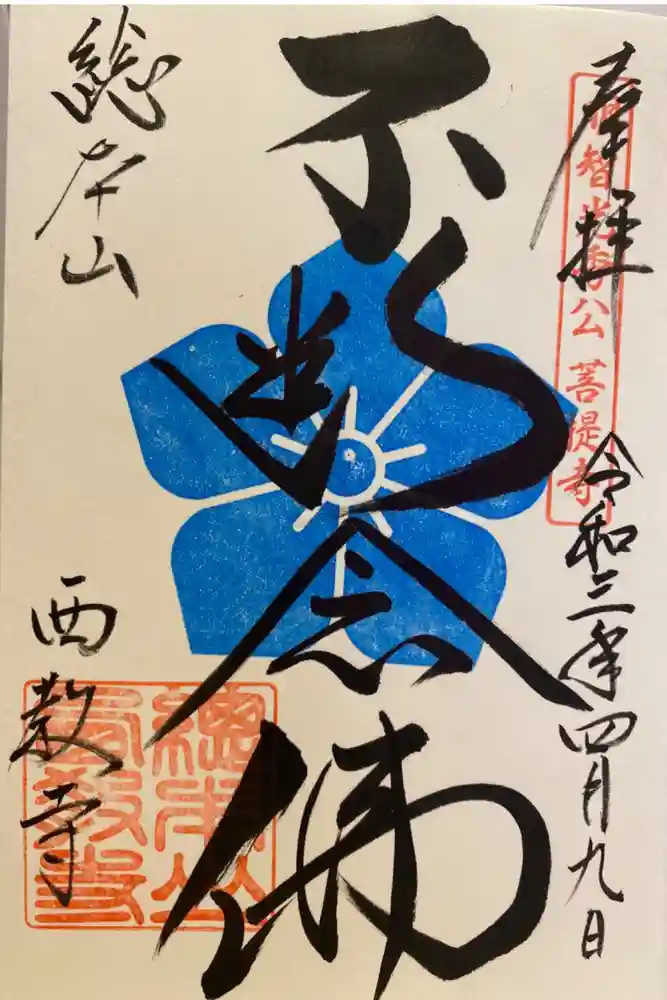 奉拝
明智光秀公菩提寺
令和三年四月九日
不断念佛
総本山
西教寺
總本山西教寺